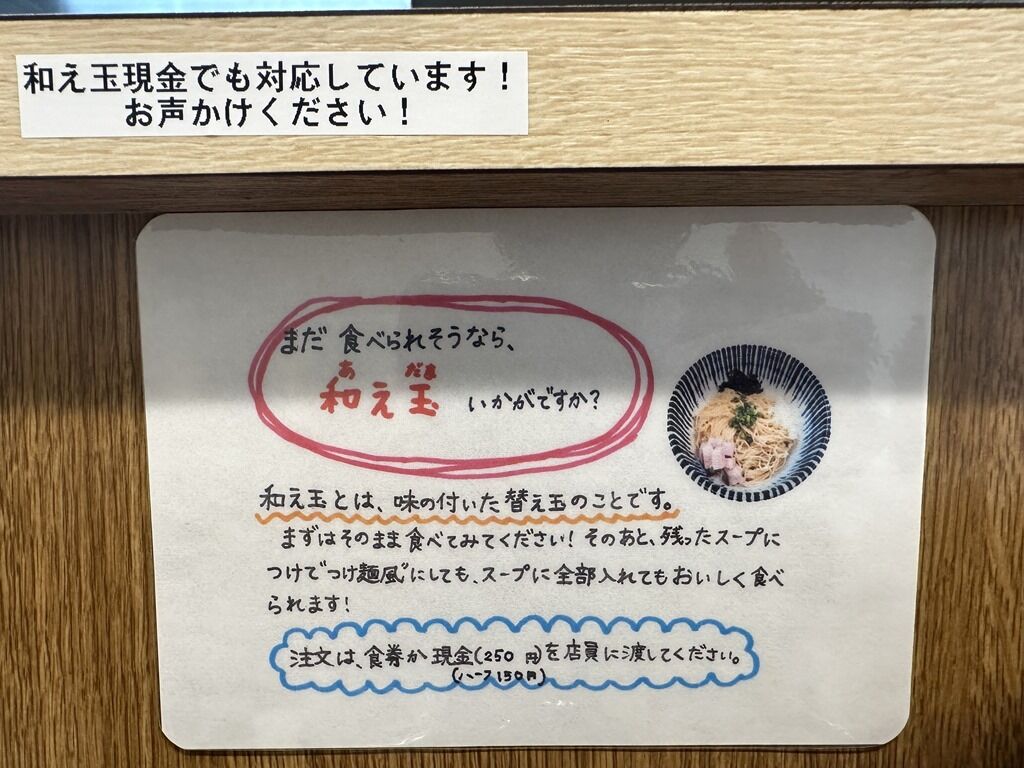 和え玉現金でも対応しています！
お声かけください！
まだ 食べられそうなら、
あ だま
和え玉 いかがですか？
和え玉とは、味の付いた替え玉のことです。
まずはそのまま食べてみてください！そのあと、残ったスープに
つけて"つけ麺風"にしても、スープに全部入れてもおいしく食べ
られます！
注文は、食券か現金(250円)を店員に渡してください。
(ハーフ150円)